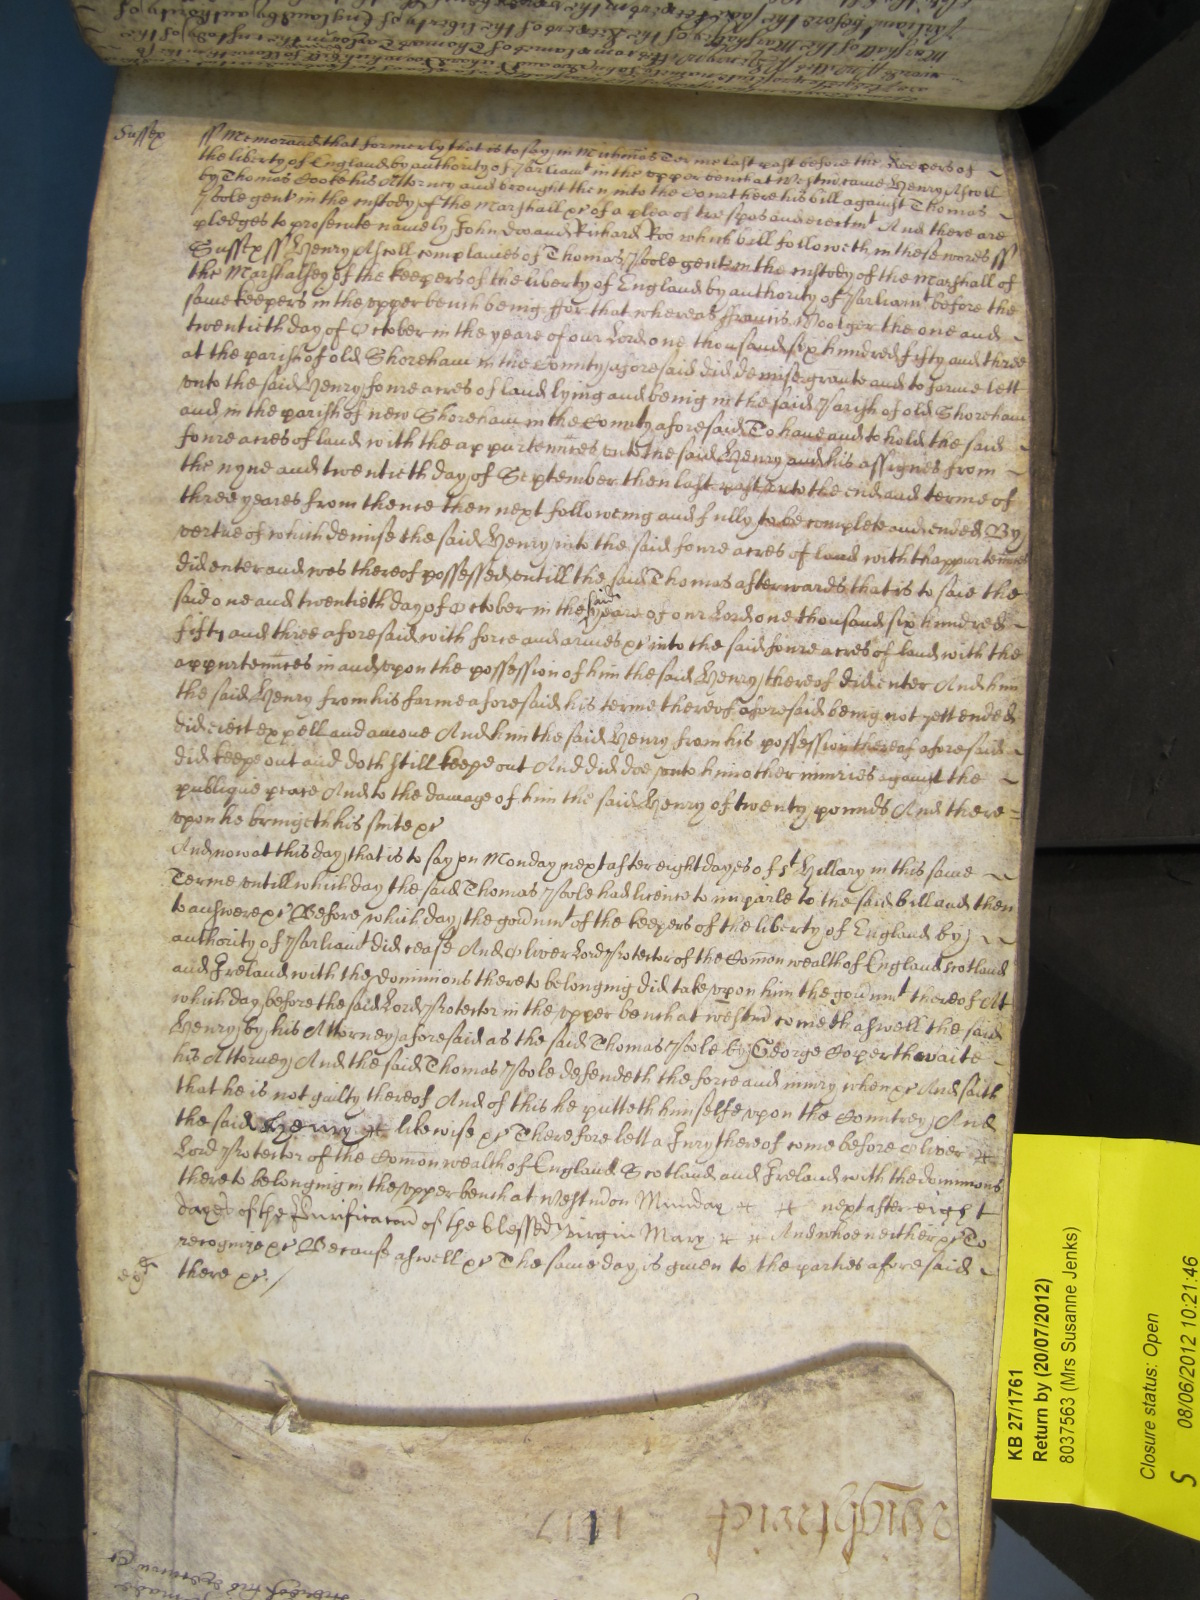 Sussex
ss Memorand that formerly that is to say in Michmas Terme last past before the Keepers of
the liberty of England by authority of Parliamt in the upper bench at Westm came Henry Ascoll
by Thomas Cooke his Attorney and brought then into the Court here his bill against Thomas
Poole gent in the custody of the Marshall &c of a plea of trespas and eiectmt And there are
pledges to prosecute namely John Doo and Richard Roo which bill followeth in these wores ss
Sussex ss Henry Ascoll complaines of Thomas Poole gent in the custody of the Marshall of
the Marshalsey of the keepers of the liberty of England by authority of Parliamt before the
same keepers in the upper bench being ffor that whereas ffrancis the one and
twentieth day of October in the yeare of our Lord one thousand six hundred fifty and three
at the parish of old Shoreham in the County aforesaid did demise graunte and to farme lett
unto the said Henry foure acres of land lying and being in the said Parish of old Shoreham
and in the parish of new Shoreham in the County aforesaid To have and to hold the said
foure acres of land with the appurtennces unto the said Henry and his assignes from
the nyne and twentieth day of September then last past unto the end and terme of
three yeares from thence then next followeing and fully to be complete and ended By
vertue of which demise the said Henry into the said foure acres of land with thappurtennces
did enter and was thereof possessed untill the said Thomas afterwards that is to saie the
said one and twentieth day of October in the said yeare of our Lord one thousand six hundred
fifty and three aforesaid with force and armes &c into the said foure acres of land with the
appurtennces in and upon the possession of him the said Henry thereof did enter And him
the said Henry from his farme aforesaid his terme thereof aforesaid being not yett ended
did eiect expell and amove And him the said Henry from his possession thereof aforesaid
did keepe out and doth still keepe out And did doe unto him other iniuries against the
publique peace And to the damage of him the said Henry of twenty pounds And there
upon he bringeth his suite &c
And now at this day that is to say on Monday next after eight dayes of St Hillary in this same
Terme untill which day the said Thomas Poole had licence to imparle to the said bill and then
to answere &c Before which day the govrnmt of the keepers of the liberty of England by
authority of Parliamt did cease And Oliver Lord Protector of the Comonwealth of England Scotland
and Ireland with the dominions thereto belonging did take upon him the govrnmt thereof At
which day before the said Lord Protector in the upper bench at Westm cometh aswell the said
Henry by his Attorney aforesaid as the said Thomas Poole by George Copperthwaite
his Attorney And the said Thomas Poole defendeth the force and iniury when &c And saith
that he is not guilty thereof And of this he putteth himselfe upon the Countrey And
the said Henry likewise &c Therefore lett a Jury thereof come before Oliver
Lord Protector of the Comonwealth of England Scotland and Ireland with the dominions
thereto belonging in the upper bench at Westm on Munday next after eight
dayes of the Purificacon of the blessed Virgin Mary And who neither &c To
recognize &c Because aswell &c The same day is given to the parties aforesaid
there &c
Wightwick 1117
KB 27/1761
Return by (20/07/2012)
8037563 (Mrs Susanne Jenks)
Closure status: Open
S 08/06/2012 10:21:46